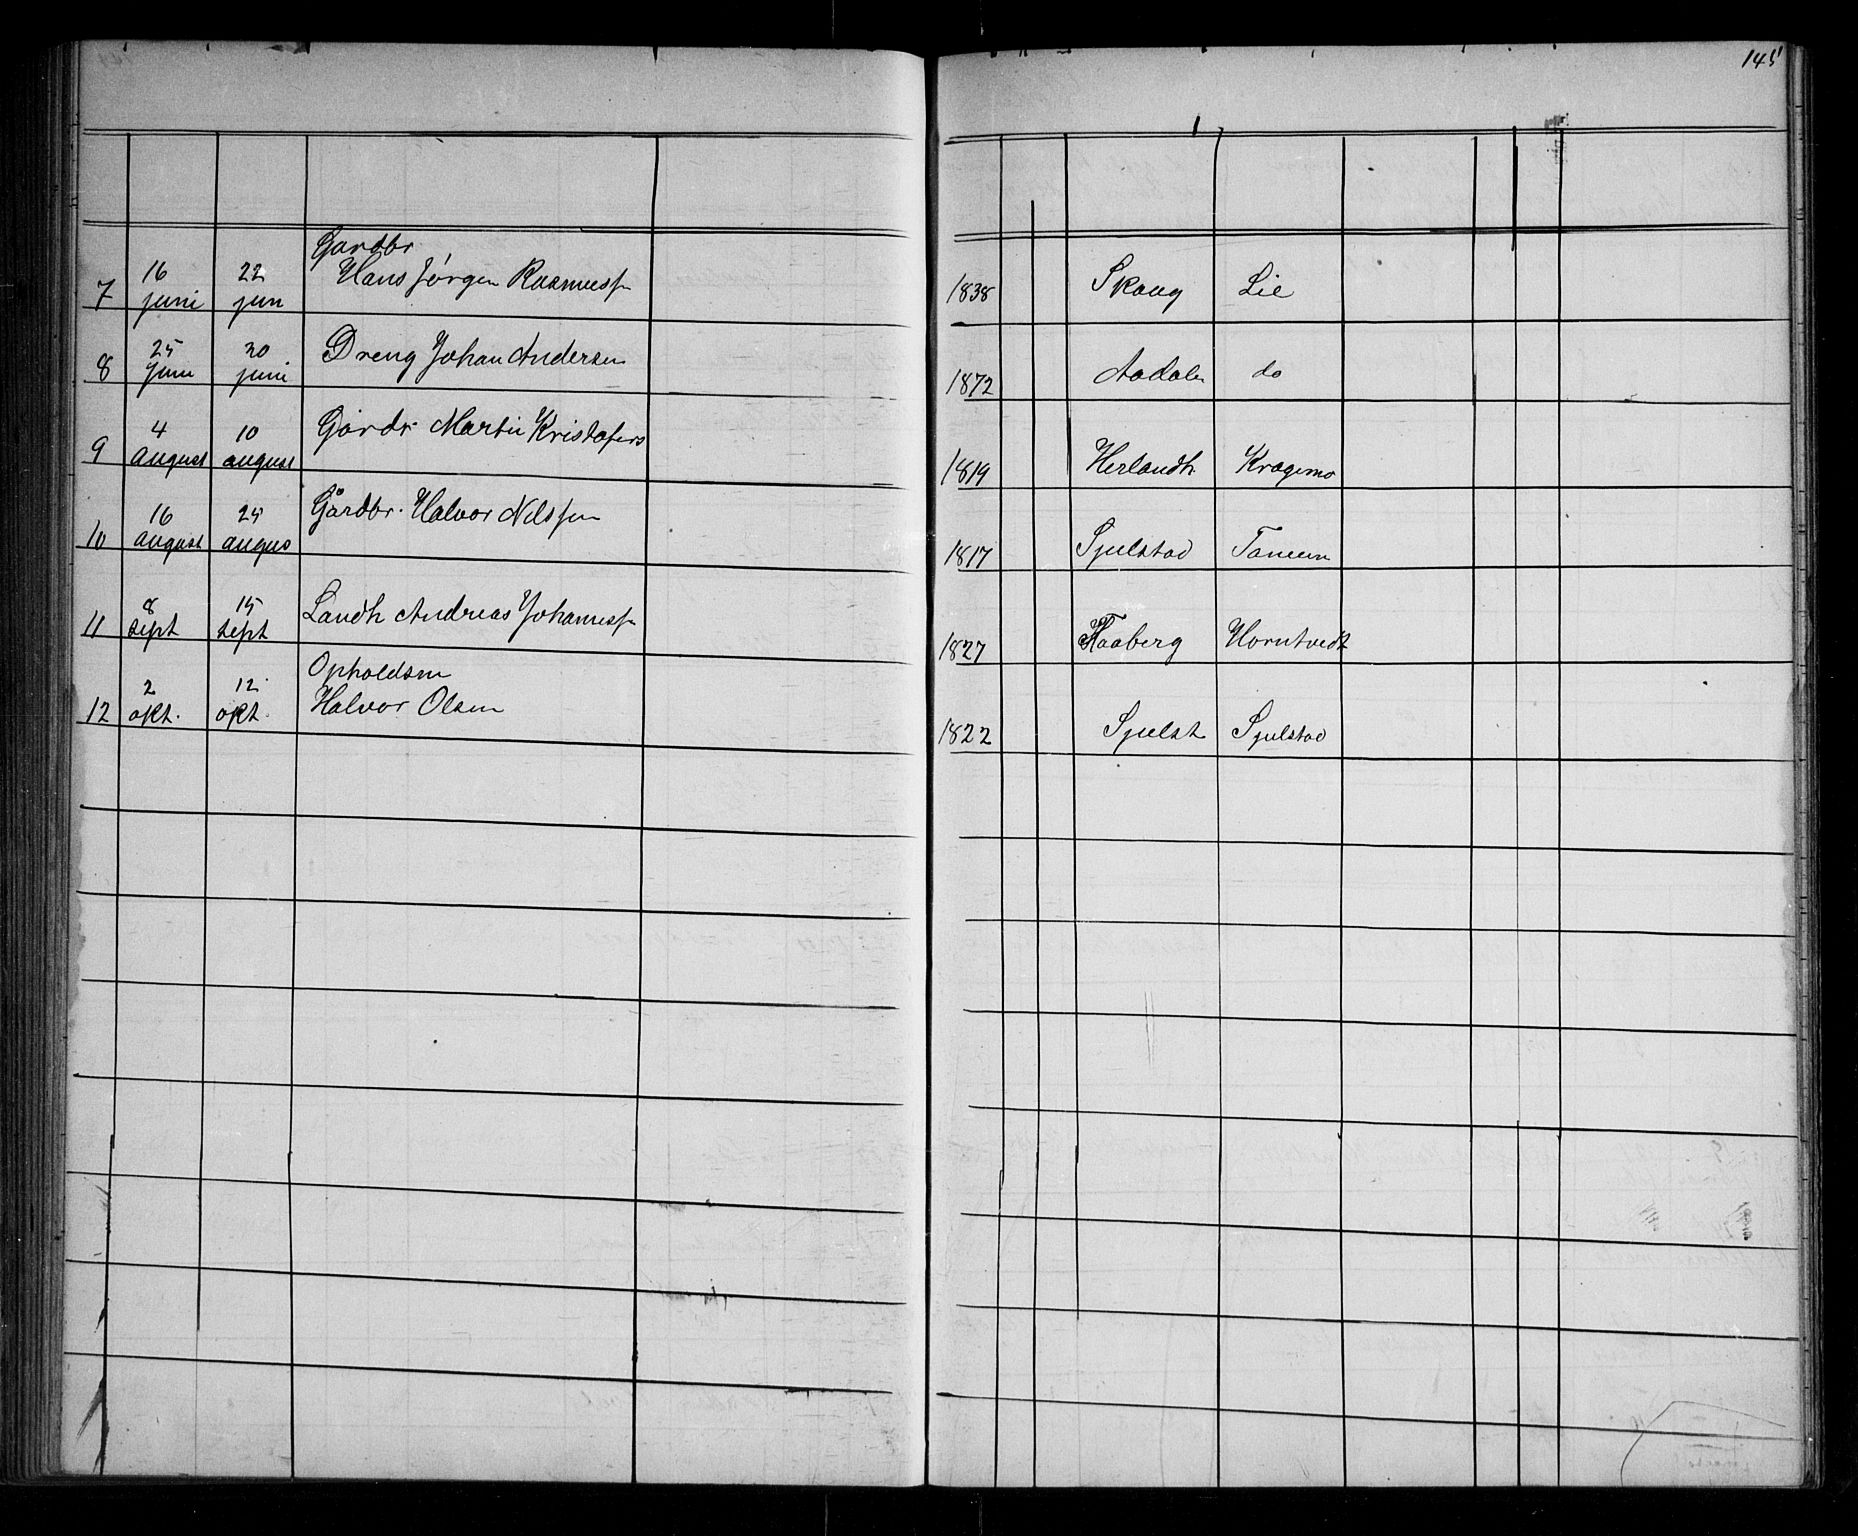 145
Gardbr
7 16 juni 22 jun Hans Jørgen Rasmuss 1838 Skaug Lie
8 25 Juni 30 juni Dreng Johan Andersen 1872 Aadalen do
9 4 august 10 august Gårdr Martin Kristofers 1819 Herlandh Kragemo
10 16 august 25 augus Gårdbr. Halvor Nilssen 1817 Sjulstad Tanum
11 8 sept 15 sept Landh Andreas Johanness 1827 Faaberg Horntvedt
Opholdsm
12 2 okt. 12 okt. Halvor Olsen 1822 Sjulst Sjulstad